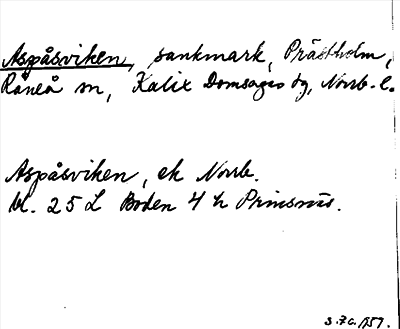 Aspåsviken, sankmark, Prästholm,
Råneå sn, Kalix Domsagas tg, Norrb. l.
Aspåsviken, ek Norrb.
bl. 25 L Boden 4 h Prinsnäs.